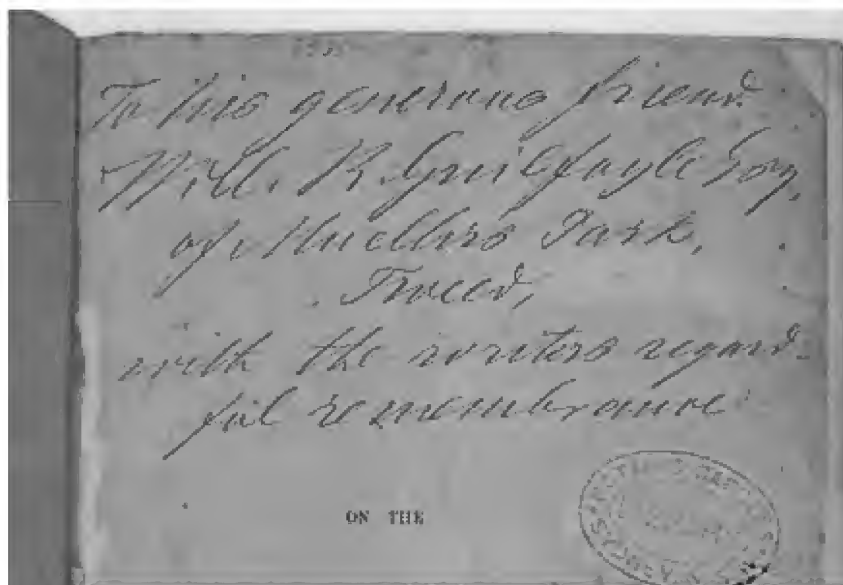 To his generous friend
Will. R. Guilfoyle Esq,
of Muellers Park,
Tweed,
with the writers regard-
ful remembrance
ON THE
BOTANIC GARDENS